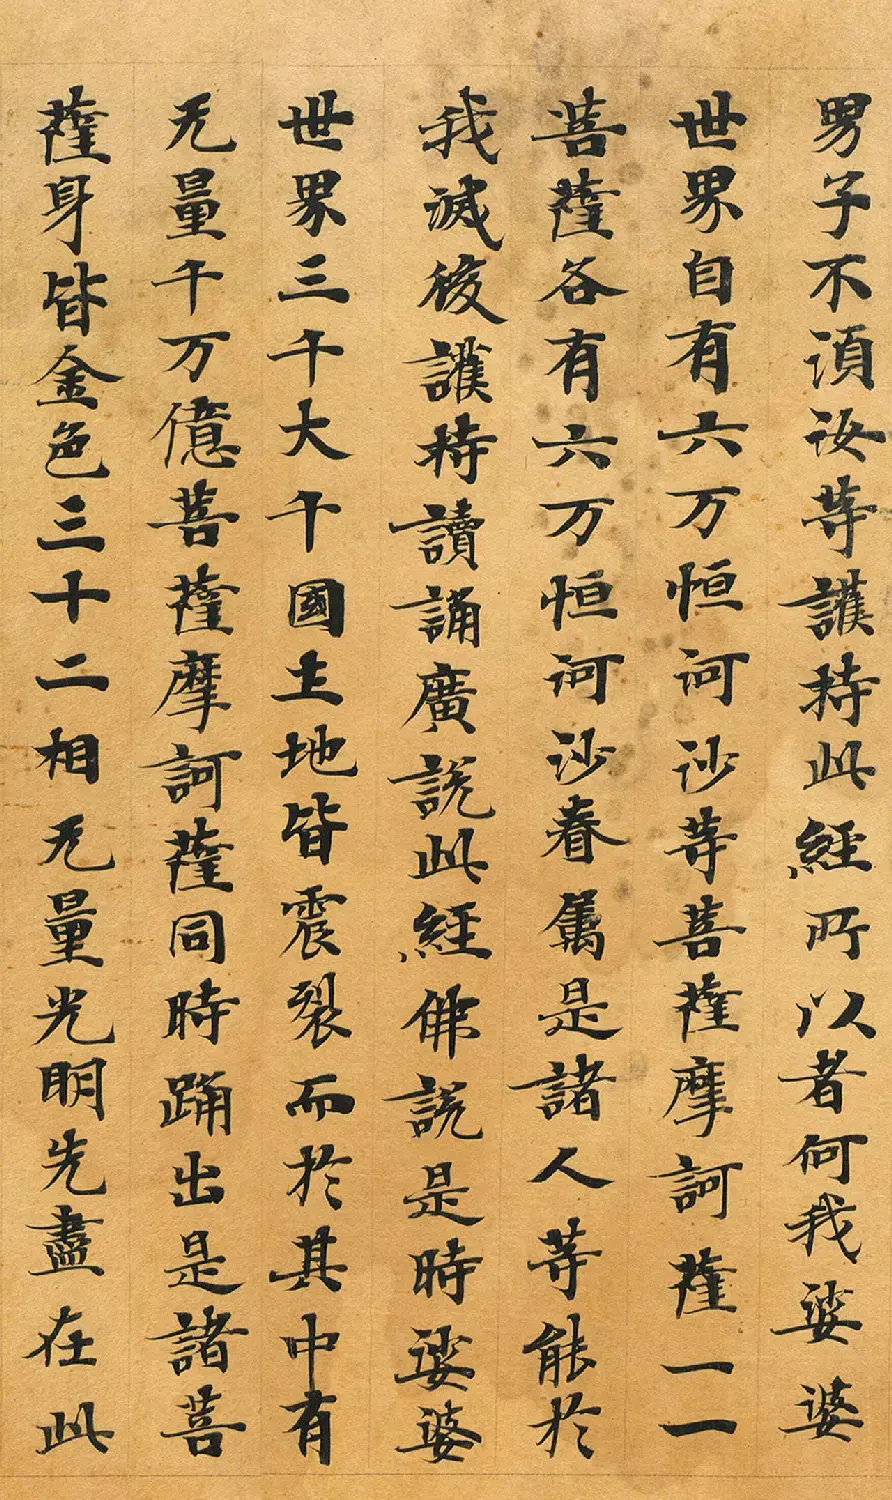 男子不須汝等護持此經所以者何我娑婆
世界自有六万恒河沙等菩薩摩訶薩一一
菩薩各有六万恒河沙眷屬是諸人等能於
我滅後護持讀誦廣說此經佛說是時娑婆
世界三千大千國土地皆震裂而於其中有
无量千万億菩薩摩訶薩同時踊出是諸菩
薩身皆金色三十二相无量光明先盡在此